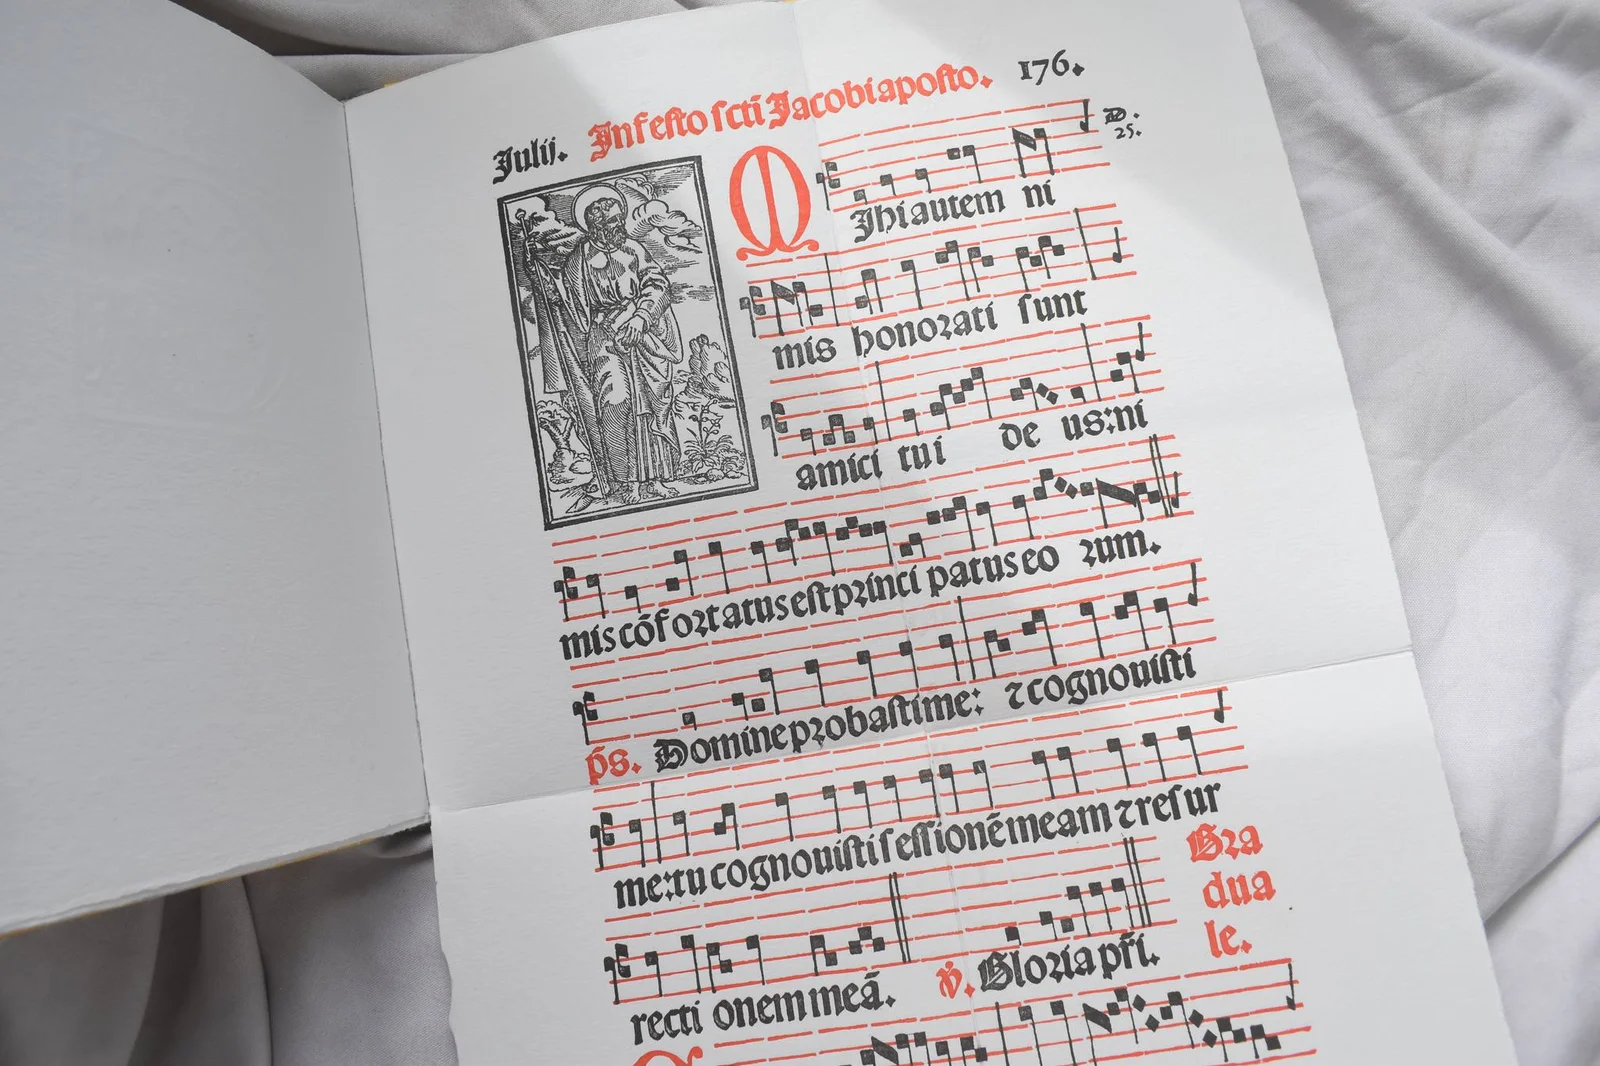 Julij. In festo scti Jacobi aposto. 176.
D. 25.
MIhi autem ni
mis honorati sunt
amici tui de us: ni
mis cōfortatus est principatus eo rum.
p̄s. Domine probasti me: ⁊ cognouisti
me: tu cognouisti sessionē meam ⁊ resur
recti onem meā. ℣. Gloria pr̄i.
Gra
dua
le.